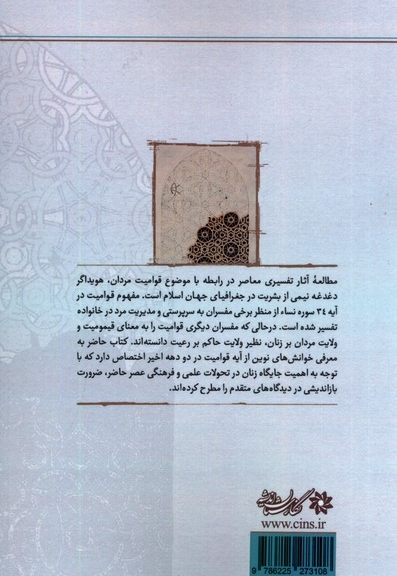 مطالعهٔ آثار تفسیری معاصر در رابطه با موضوع قوامیت مردان، هویداگر
دغدغه نیمی از بشریت در جغرافیای جهان اسلام است. مفهوم قوامیت در
آیه ۳۴ سوره نساء از منظر برخی مفسران به سرپرستی و مدیریت مرد در خانواده
تفسیر شده است. درحالی که مفسران دیگری قوامیت را به معنای قیمومیت و
ولایت مردان بر زنان، نظیر ولایت حاکم بر رعیت دانسته‌اند. کتاب حاضر به
معرفی خوانش‌های نوین از آیه قوامیت در دو دهه اخیر اختصاص دارد که با
توجه به اهمیت جایگاه زنان در تحولات علمی و فرهنگی عصر حاضر، ضرورت
بازاندیشی در دیدگاه‌های متقدم را مطرح کرده‌اند.
نگارستان اندیشه
www.cins.ir
9 786225 273108